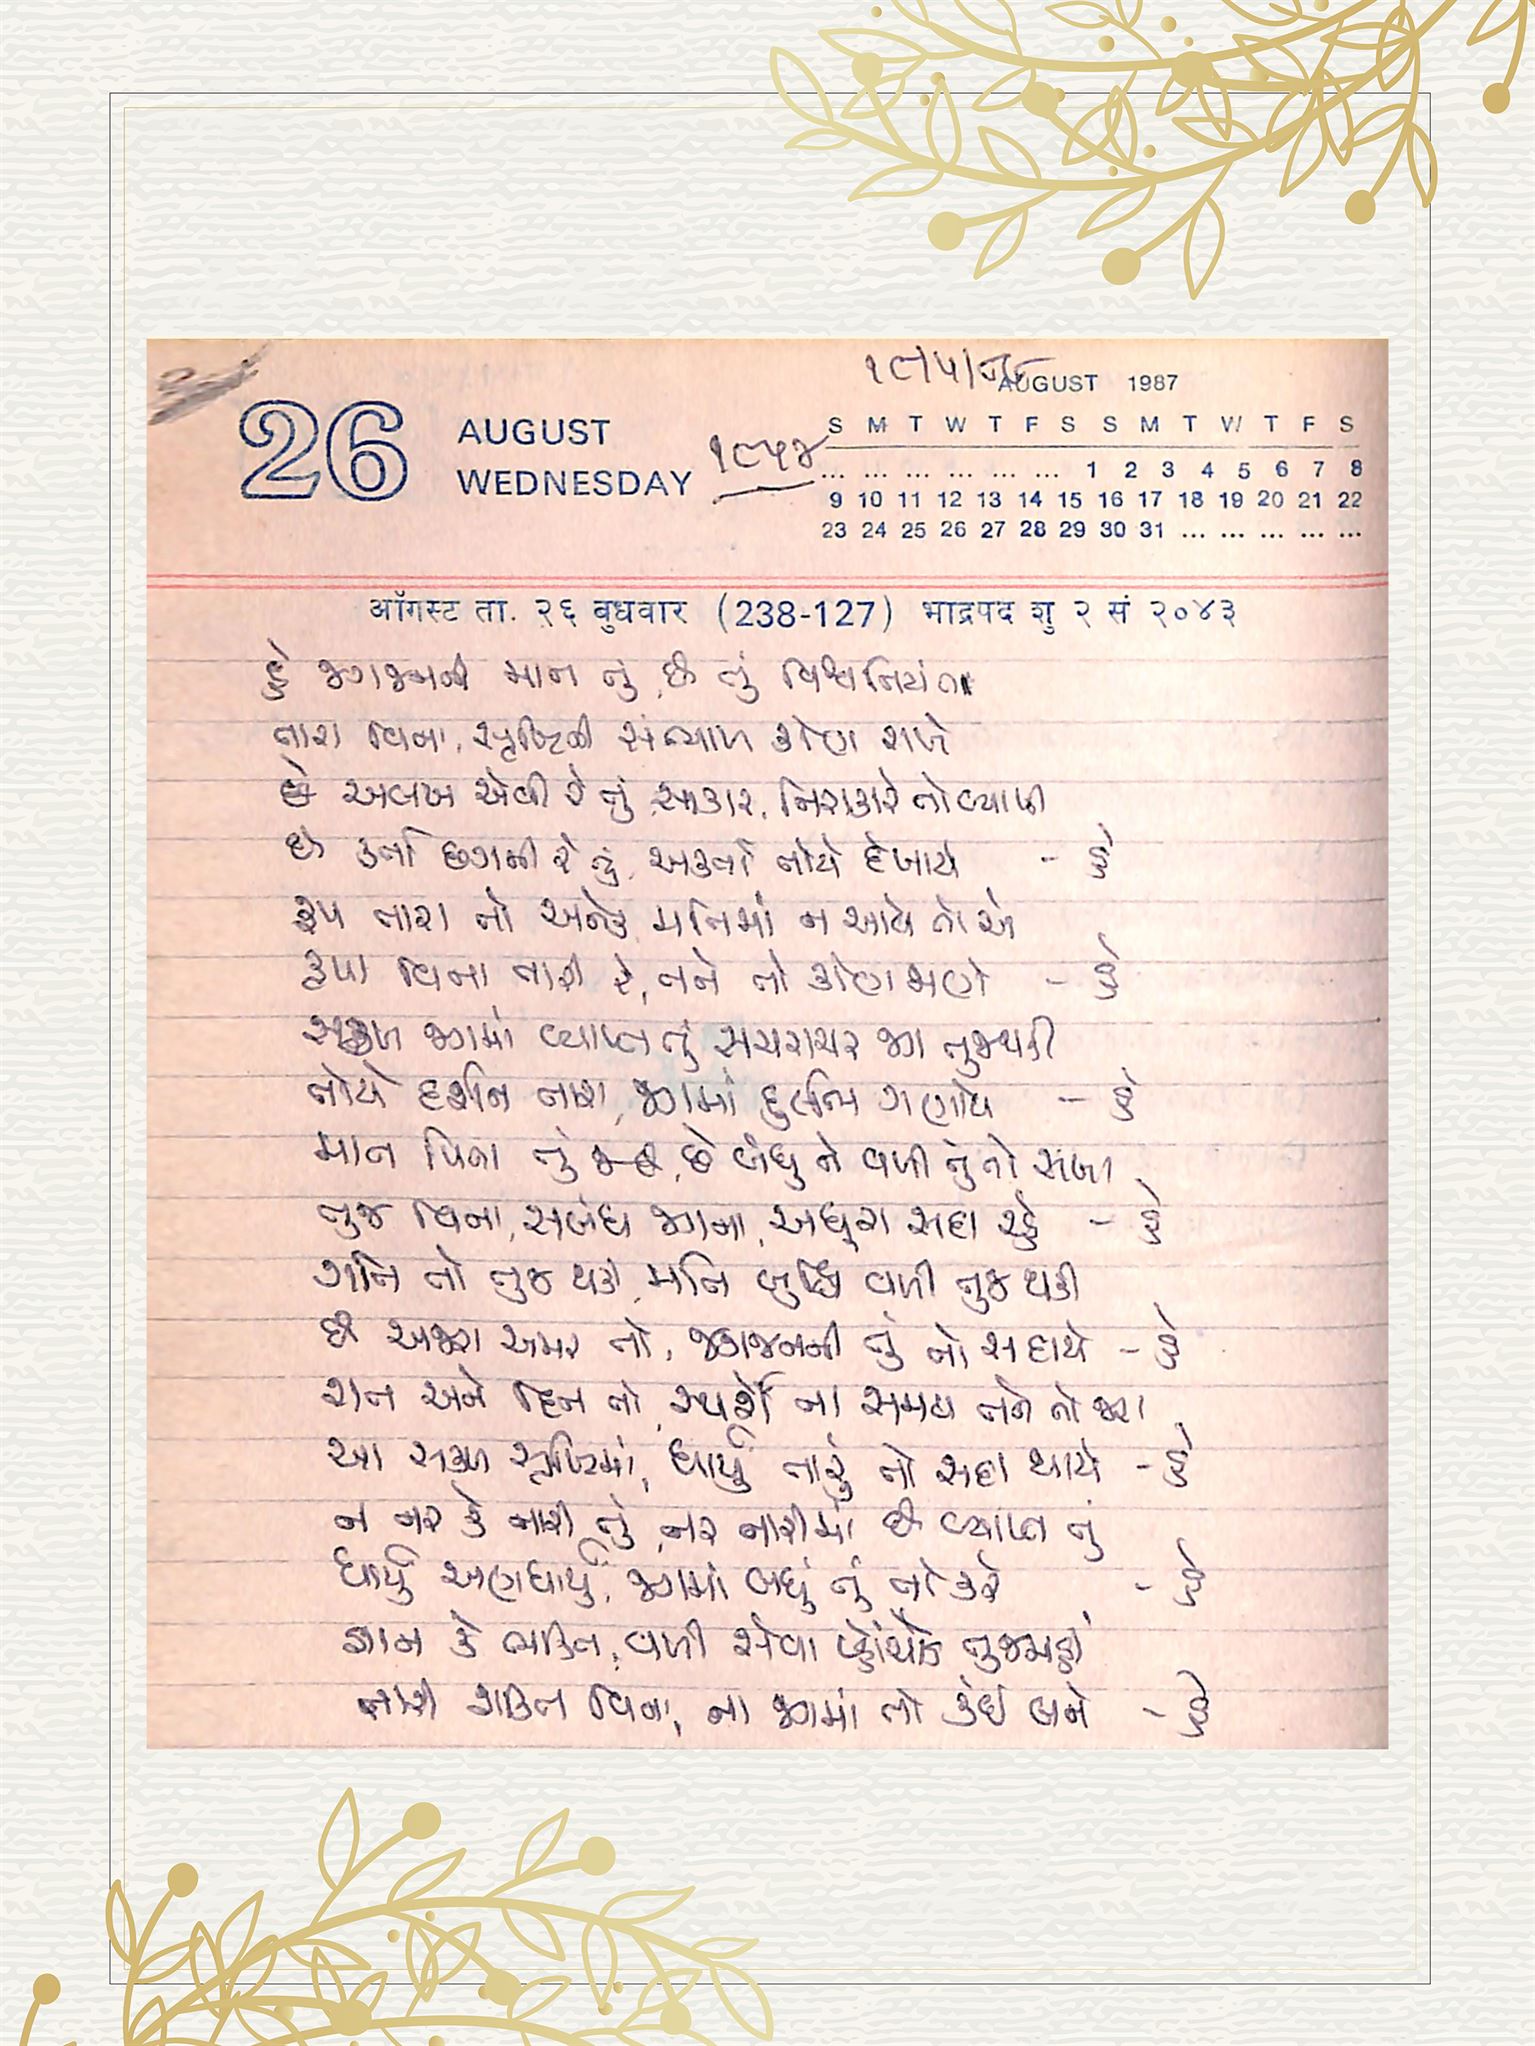 ૧૯/૫/૮૮
AUGUST 1987
26 AUGUST
WEDNESDAY
૧૯૫૪
S M T W T F S S M T W T F S
... ... ... ... ... ... 1 2 3 4 5 6 7 8
9 10 11 12 13 14 15 16 17 18 19 20 21 22
23 24 25 26 27 28 29 30 31 ... ... ... ... ...
ऑगस्ट ता. २६ बुधवार (238-127) भाद्रपद शु २ सं २०४३
હે જગજનની માત તું, છે તું વિશ્વનિયંતા
તારા વિના, સૃષ્ટિની સંભાળ કોણ રાખે
છે અલખ એવી રે તું, સાકાર, નિરાકારે તો વ્યાપી
છે કર્તા જગની રે તું, અકર્તા તોયે દેખાયે - હે
રૂપ તારા તો અનેક, મતિમાં ન આવે તો એ
રૂપા વિના તારી રે, તને તો કોણ ભણે - હે
સકળ જગમાં વ્યાપ્ત તું સચરાચર જગ તુજથકી
તોયે દર્શન તારા, જગમાં દુર્લભ ગણાયે - હે
માત પિતા તું, છે બંધુ ને વળી તું તો સખા,
તુજ વિના, સબંધ જગના, અધૂરા સદા રહે - હે
ગતિ તો તુજ થકી, મતિ બુદ્ધિ વળી તુજ થકી
છે અજરા અમર તો, જગજનની તું તો સદાયે - હે
રાત અને દિન તો, સ્પર્શે ના સમય તને તો જરા,
આ સકળ સૃષ્ટિમાં, ધાર્યું તારું તો સદા થાયે - હે
ન નર કે નારી તું, નર નારીમાં છે વ્યાપ્ત તું
ધાર્યું અણધાર્યું, જગમાં બધું તું તો કરે - હે
જ્ઞાન કે ભક્તિ, વળી સેવા પહોંચે તુજમહીં
તારી શક્તિ વિના, ના જગમાં તો કંઈ બને - હે